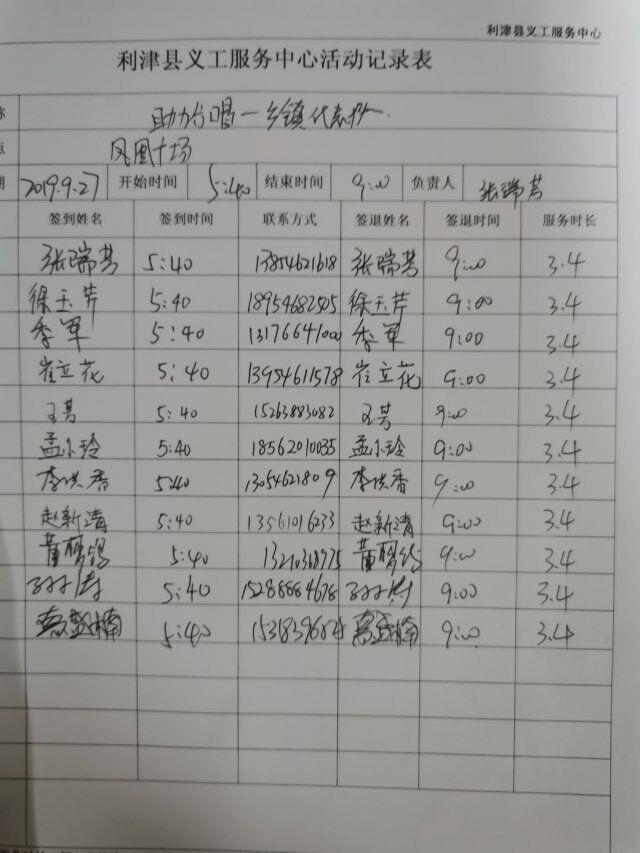 利津县义工服务中心
利津县义工服务中心活动记录表
助力合唱一乡镇代表队
凤凰广场
2019.9.27 开始时间 5:40 结束时间 9:00 负责人 张瑞芳
签到姓名 签到时间 联系方式 签退姓名 签退时间 服务时长
张瑞芳 5:40 13854621618 张瑞芳 9:00 3.4
徐玉芹 5:40 18954682505 徐玉芹 9:00 3.4
季军 5:40 13176641000 季军 9:00 3.4
崔立花 5:40 13954611578 崔立花 9:00 3.4
王芳 5:40 15263883082 王芳 9:00 3.4
孟小玲 5:40 18562010035 孟小玲 9:00 3.4
李洪香 5:40 13054621809 李洪香 9:00 3.4
赵新清 5:40 13561016233 赵新清 9:00 3.4
5:40 9:00 3.4
5:40 15288884678 9:00 3.4
5:40 9:00 3.4